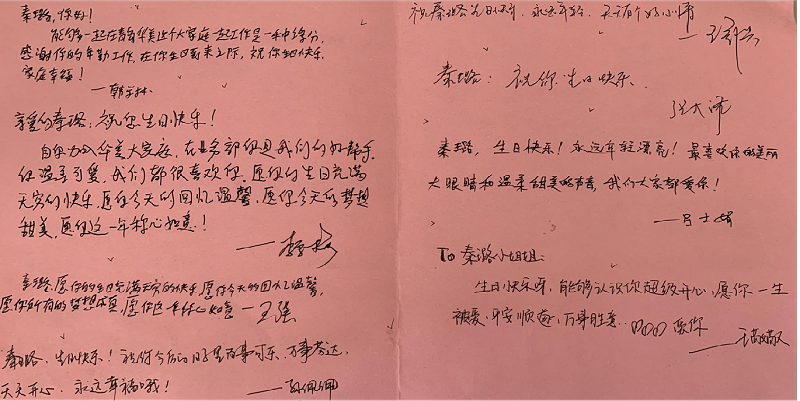 秦璐,你好!
能够一起在静华美这个大家庭一起工作是一种缘分,
感谢你的辛勤工作,在你生日到来之际,祝你生日快乐,
家庭幸福!
亲爱的秦璐:祝你生日快乐!
自你加入华美大家庭,在业务部你是我们的好帮手,
你温柔可爱,我们都很喜欢你,愿你的生日充满
无穷的快乐,愿你今天的回忆温馨,愿你今天的梦想
甜美,愿你这一年称心如意!
秦璐,愿你的生日充满无穷的快乐,愿你今天的回忆温馨,
愿你所有的梦想成真,愿你这一年称心如意 —王强
秦璐,生日快乐!祝你今后的日子里万事可乐,万事芬达,
天天开心,永远幸福哦!
——孙佩佩
祝秦璐生日快乐,永远年轻,天天有个好心情
秦璐:祝你生日快乐
秦璐,生日快乐!永远年轻漂亮!最喜欢你的美丽
大眼睛和温柔甜美的声音,我们大家都爱你!
——吕士娟
To 秦璐小姐姐:
生日快乐呀,能够认识你超级开心,愿你一生
被爱,平安顺遂,万事胜意..口口口爱你